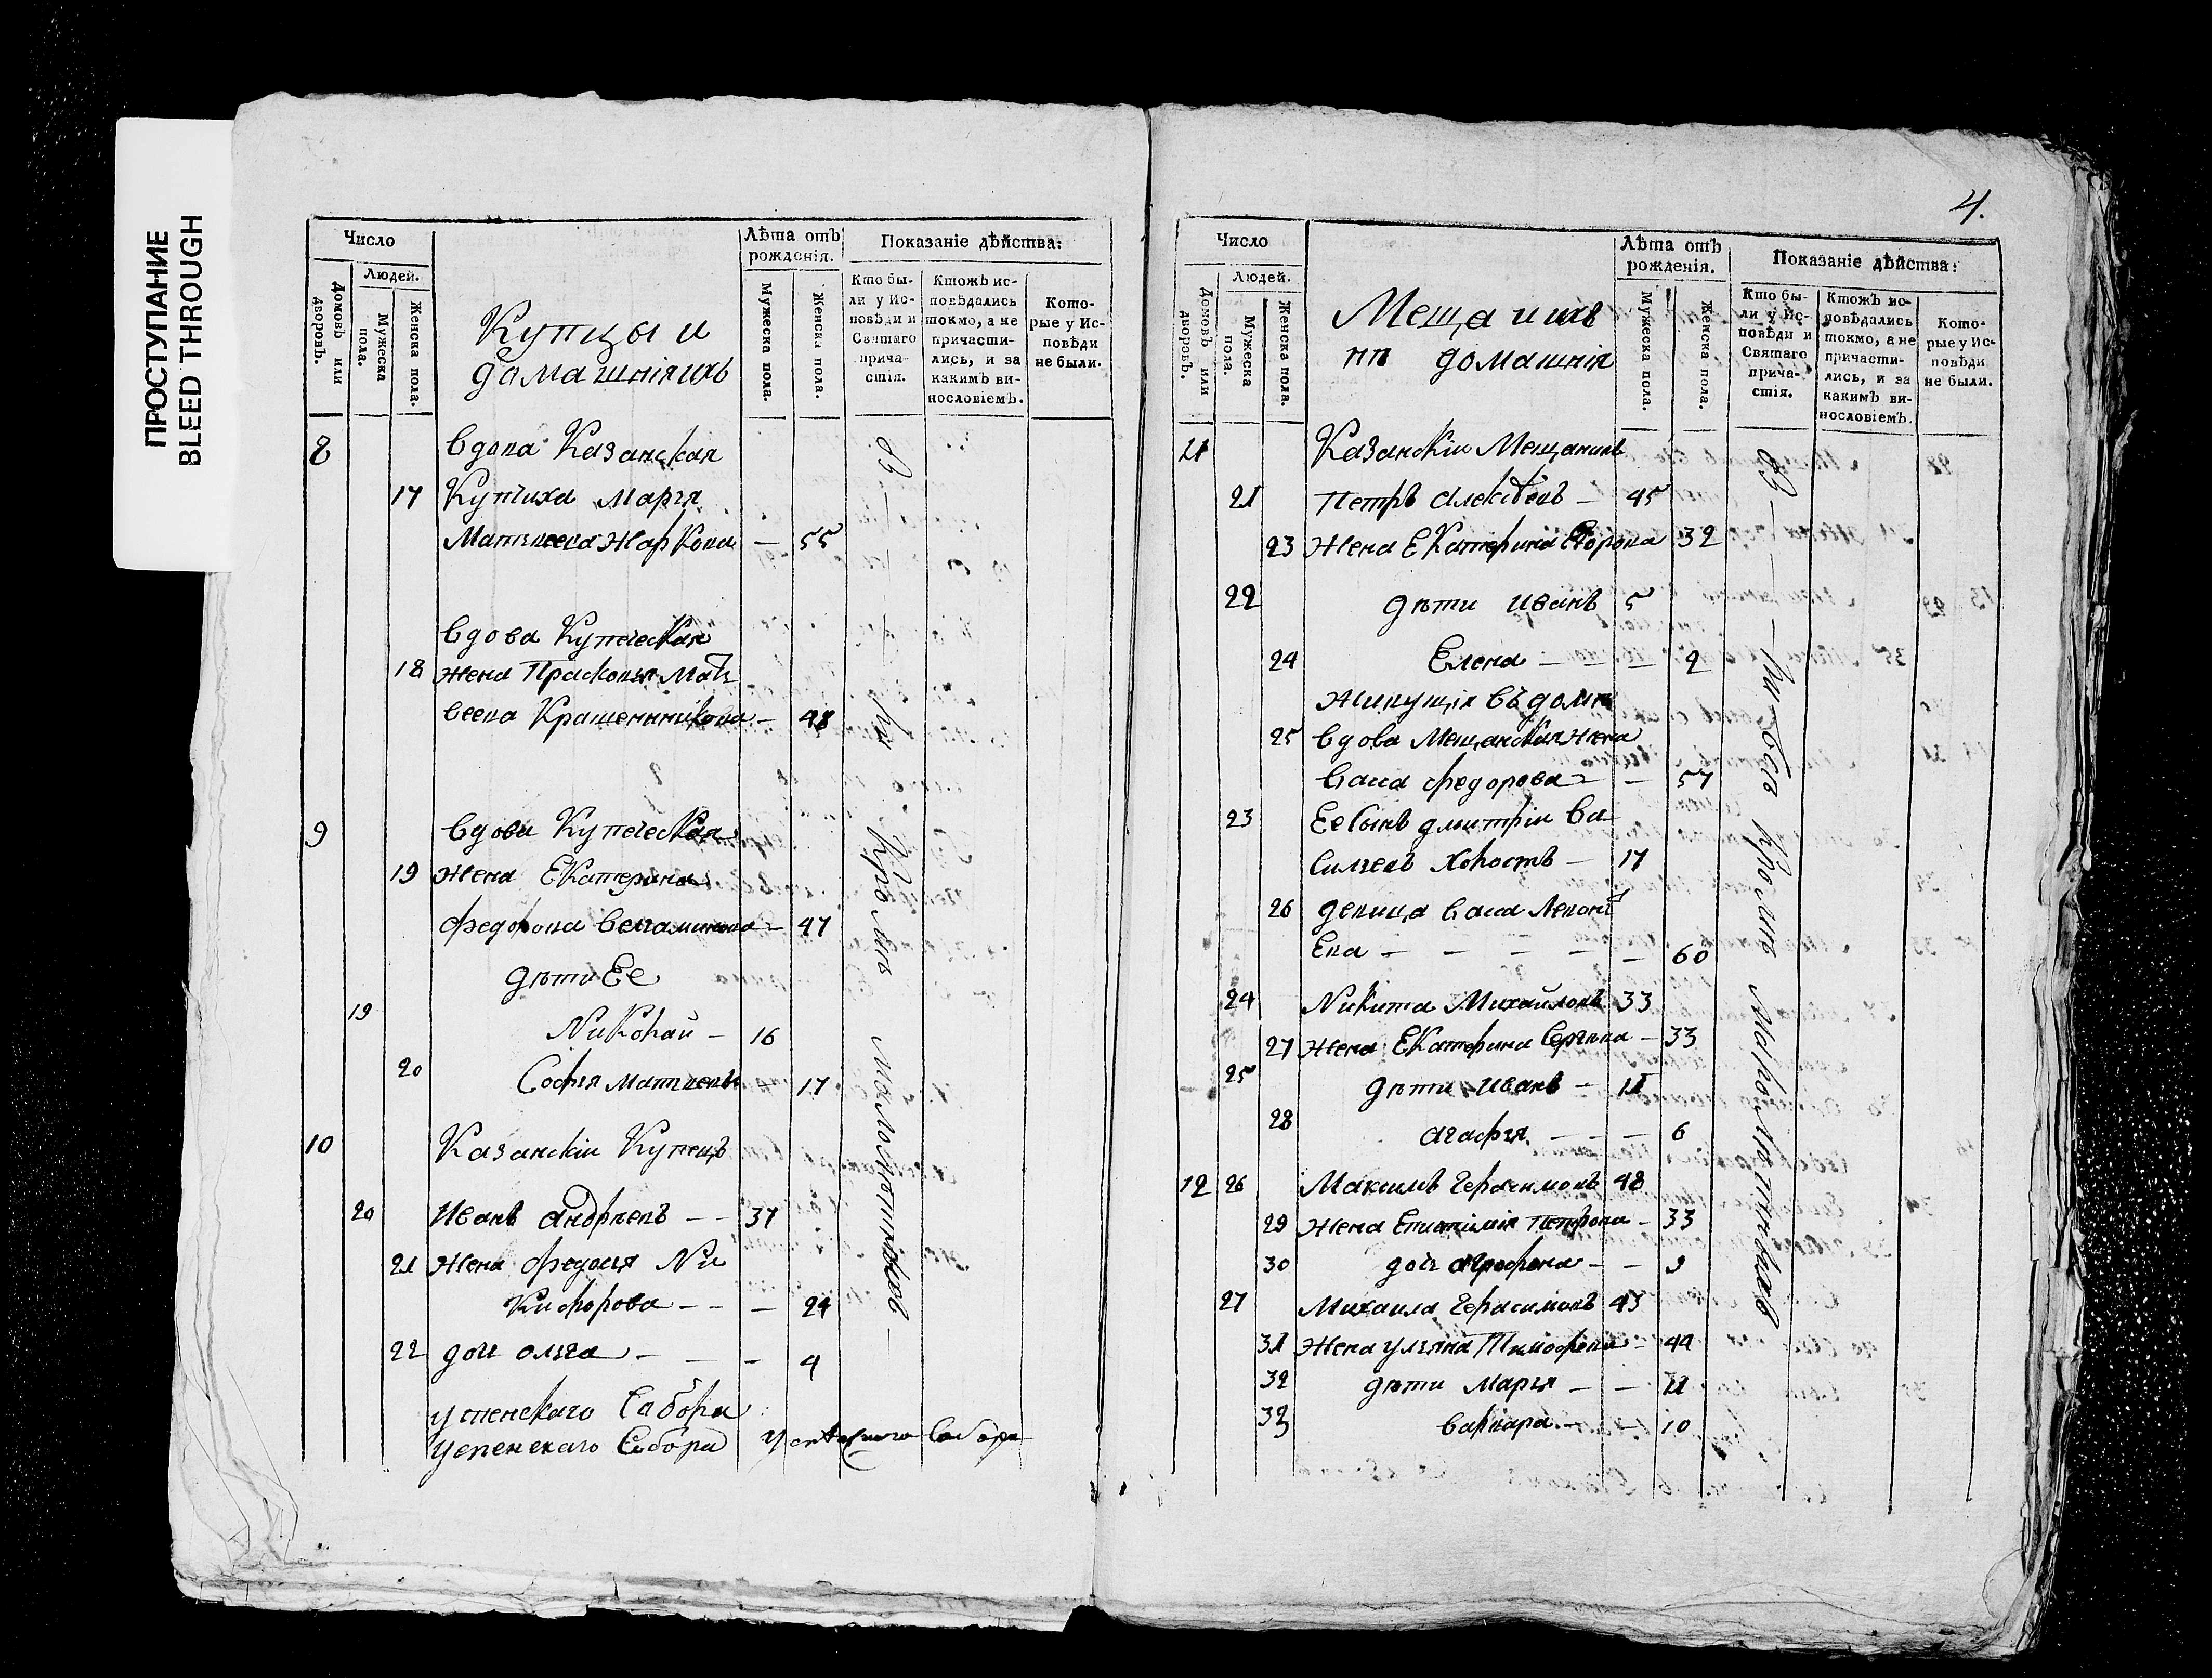 ПРОСТУПАНИЕ
BLEED THROUGH
Число
Людей.
Домовъ или дворовъ.
Мужеска пола.
Женска пола.
Купцы и
домашнія ихъ
Лѣта отъ рожденія.
Мужеска пола.
Женска пола.
Показаніе дѣйства:
Кто были у Исповѣди и Святаго причастія.
Ктожъ исповѣдались токмо, а не причастились, и за какимъ винословіемъ.
Которые у Исповѣди не были.
8 вдова Казанская
17 Купчиха Марья
Матвеева Жаркова — 55
вдова Купеческая
18 жена Прасковья Мат
веева Крашенникова — 48
9 вдова Купеческая
19 жена Екатерина
Федорова — 47
дѣти Ее
19 Николай — 16
20 Софья Матвеевы — 17
10 Казанскій Купецъ
20 Иванъ Андреевъ — 37
21 жена Федосья Ни
кифорова — — — 24
22 дочь Ольга — — — 4
успенскаго Сабора
успенскаго Собора
Собора
всѣ
Кромѣ малолѣтниковъ —
4.
Число
Людей.
Домовъ или дворовъ.
Мужеска пола.
Женска пола.
Меща и ихъ
домашнія
Лѣта отъ рожденія.
Мужеска пола.
Женска пола.
Показаніе дѣйства:
Кто были у Исповѣди и Святаго причастія.
Ктожъ исповѣдались токмо, а не причастились, и за какимъ винословіемъ.
Которые у Исповѣди не были.
11 Казанскіи Мещанинъ
21 Петръ Алексѣевъ — 45
23 Жена Екатерина Егорова 32
22 дѣти Иванъ 5
24 Елена — — — 2
живущія въ доми
25 вдова Мещанская жена
Васса Федорова — — 57
23 Ее сынъ дмитріи Ва
сильевъ холостъ — 17
26 девица Васса Леонть
Ева — — — — — 60
24 Никита Михайловъ 33
27 жена Екатерина Сергѣева — 33
25 дѣти Иванъ — 11
28 Агафья — — — 6
12 26 Максимъ Герасимовъ 48
29 жена Петрова — 33
30 дочь Агрофена — — 9
27 Михаила Герасимовъ 43
31 жена Ульяна Тимофеева — 44
32 дѣти Марья — — 11
33 Варвара — — 10
всѣ Кромѣ малолѣтнихъ